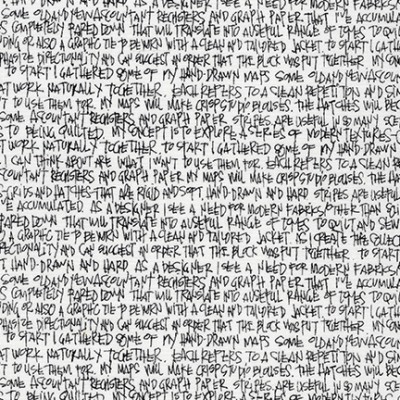 AND HARD AS A DESIGNER I SEE A NEED FOR MODERN FABRICS
SOME OLD AND NEW ACCOUNTANT REGISTERS AND GRAPH PAPER THAT I'VE ACCUMULA
S COMPLETELY PAPED DOWN THAT WILL TRANSLATE INTO A USEFUL RANGE OF TONES TO QUIL
DING OR ALSO A GRAPHIC TIE TO BE WORN WITH A CLEAN AND TAILORED JACKET TO START I GATHE
PHASIZE DIRECTIONALITY AND CAN SUGGEST AN ORDER THAT THE BLOCK WAS PUT TOGETHER
TO START I GATHERED SOME OF MY HAND-DRAWN MAPS SOME OLD AND NEW ACCOUN
AT WORK NATURALLY TOGETHER. EACH REFERS TO A CLEAN REPETITION AND SIM
T TO USE THEM FOR. MY MAPS WILL MAKE CRISP STUDIO BLOUSES. THE HATCHES WILL BEC
COUNTANT REGISTERS AND GRAPH PAPER STRIPES ARE USEFUL IN SO MANY SCE
S TO BEING QUILTED. MY CONCEPT IS TO EXPLORE A SERIES OF MODERN TEXTURES-
WORK NATURALLY TOGETHER. TO START I GATHERED SOME OF MY HAND DRAWN
. I CAN THINK ABOUT ARE WHAT I WANT TO USE THEM FOR. EACH REFERS TO A CLEAN RE
OUNTANT REGISTERS AND GRAPH PAPER MY MAPS WILL MAKE CRISP STUDIO BLOUSES. THE HA
S-GRIDS AND HATCHES-THAT ARE RIGID AND SOFT HAND-DRAWN AND HARD STRIPES ARE USEFUL
VE ACCUMULATED AS A DESIGNER I SEE A NEED FOR MODERN FABRICS OTHER THAN SOLI
PAPED DOWN THAT WILL TRANSLATE INTO A USEFUL RANGE OF TONES TO QUILT AND SEW
O A GRAPHIC TIE TO BE WORN WITH A CLEAN AND TAILORED JACKET AS I CREATE THE COLLEC
PECTIONALITY AND CAN SUGGEST AN ORDER THAT THE BLOCK WAS PUT TOGETHER TO START
T, HAND-DRAWN AND HARD AS A DESIGNER I SEE A NEED FOR MODERN FABRICS
SOME OLD AND NEW ACCOUNTANT REGISTERS AND GRAPH PAPER THAT I'VE ACCUMULA
S COMPLETELY PAPED DOWN THAT WILL TRANSLATE INTO A USEFUL RANGE OF TONES TO QU
DING OR ALSO A GRAPHIC TIE TO BE WORN WITH A CLEAN AND TAILORED JACKET TO START I GATH
PHASIZE DIRECTIONALITY AND CAN SUGGEST AN ORDER THAT THE BLOCK WAS PUT TOGETHER IN SON
TO START I GATHERED SOME OF MY HAND-DRAWN MAPS SOME OLD AND NEW ACCOUN
AT WORK NATURALLY TOGETHER. EACH REFERS TO A CLEAN REPETITION AND SIM
T TO USE THEM FOR. MY MAPS WILL MAKE CRISP STUDIO BLOUSES. THE HATCHES WILL BEC
SOME ACCOUNTANT REGISTERS AND GRAPH PAPER STRIPES ARE USEFUL IN SO MANY SCE
S TO BEING QUILTED. MY CONCEPT IS TO EXPLORE A SERIES OF MODERN TEXTURES